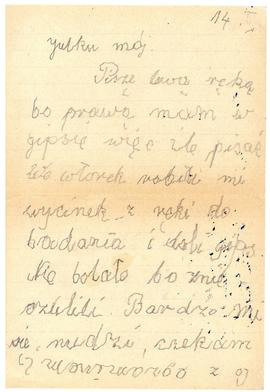 14
Julku mój.
Pisze lewą ręką
bo prawą mam w
gipsie więc źle pisać
We wtorek robili mi
wycinek z ręki do
badania i dali gips
Nie bolało bo znie-
czulili Bardzo mi
się nudzi, czekam
z